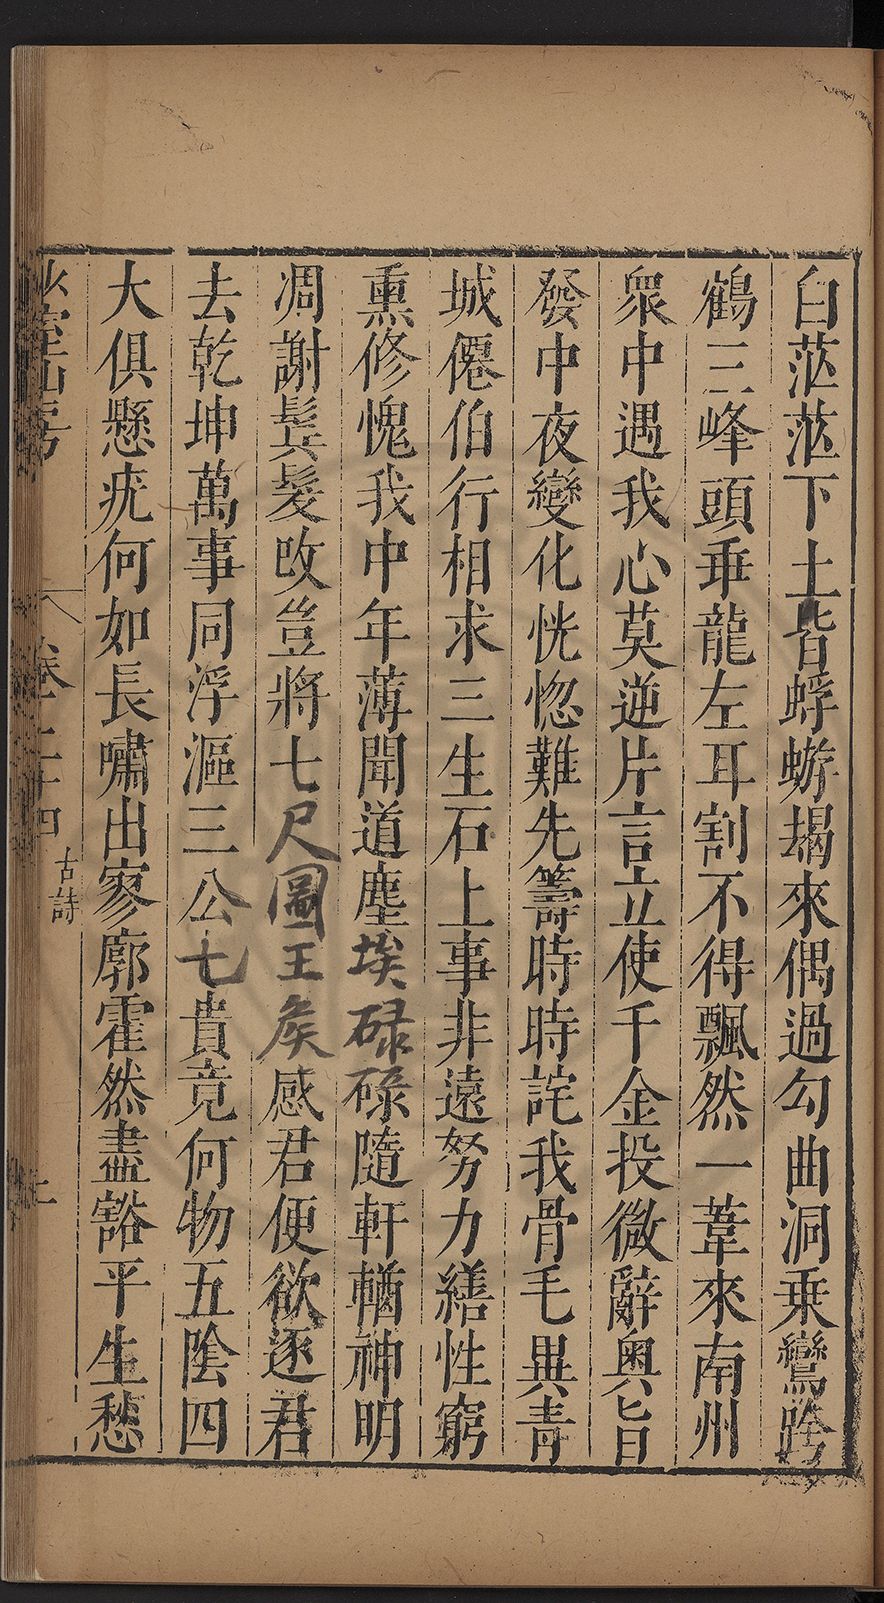 白茫茫下土皆蜉蝣朅來偶過勾曲洞乗鸞跨
鶴三峰頭垂龍左耳割不得飄然一葦來南州
衆中遇我心莫逆片言立使千金投微辭奥旨
發中夜變化恍惚難先籌時時詫我骨毛異青
城僊伯行相求三生石上事非遠努力繕性窮
熏修愧我中年薄聞道塵埃碌碌隨軒輶神明
凋謝鬂髮改豈將七尺圖王矦感君便欲逐君
去乾坤萬事同浮漚三公七貴竟何物五陰四
大俱懸疣何如長嘯出寥廓霍然盡豁平生愁
室山房
卷二十四
古詩